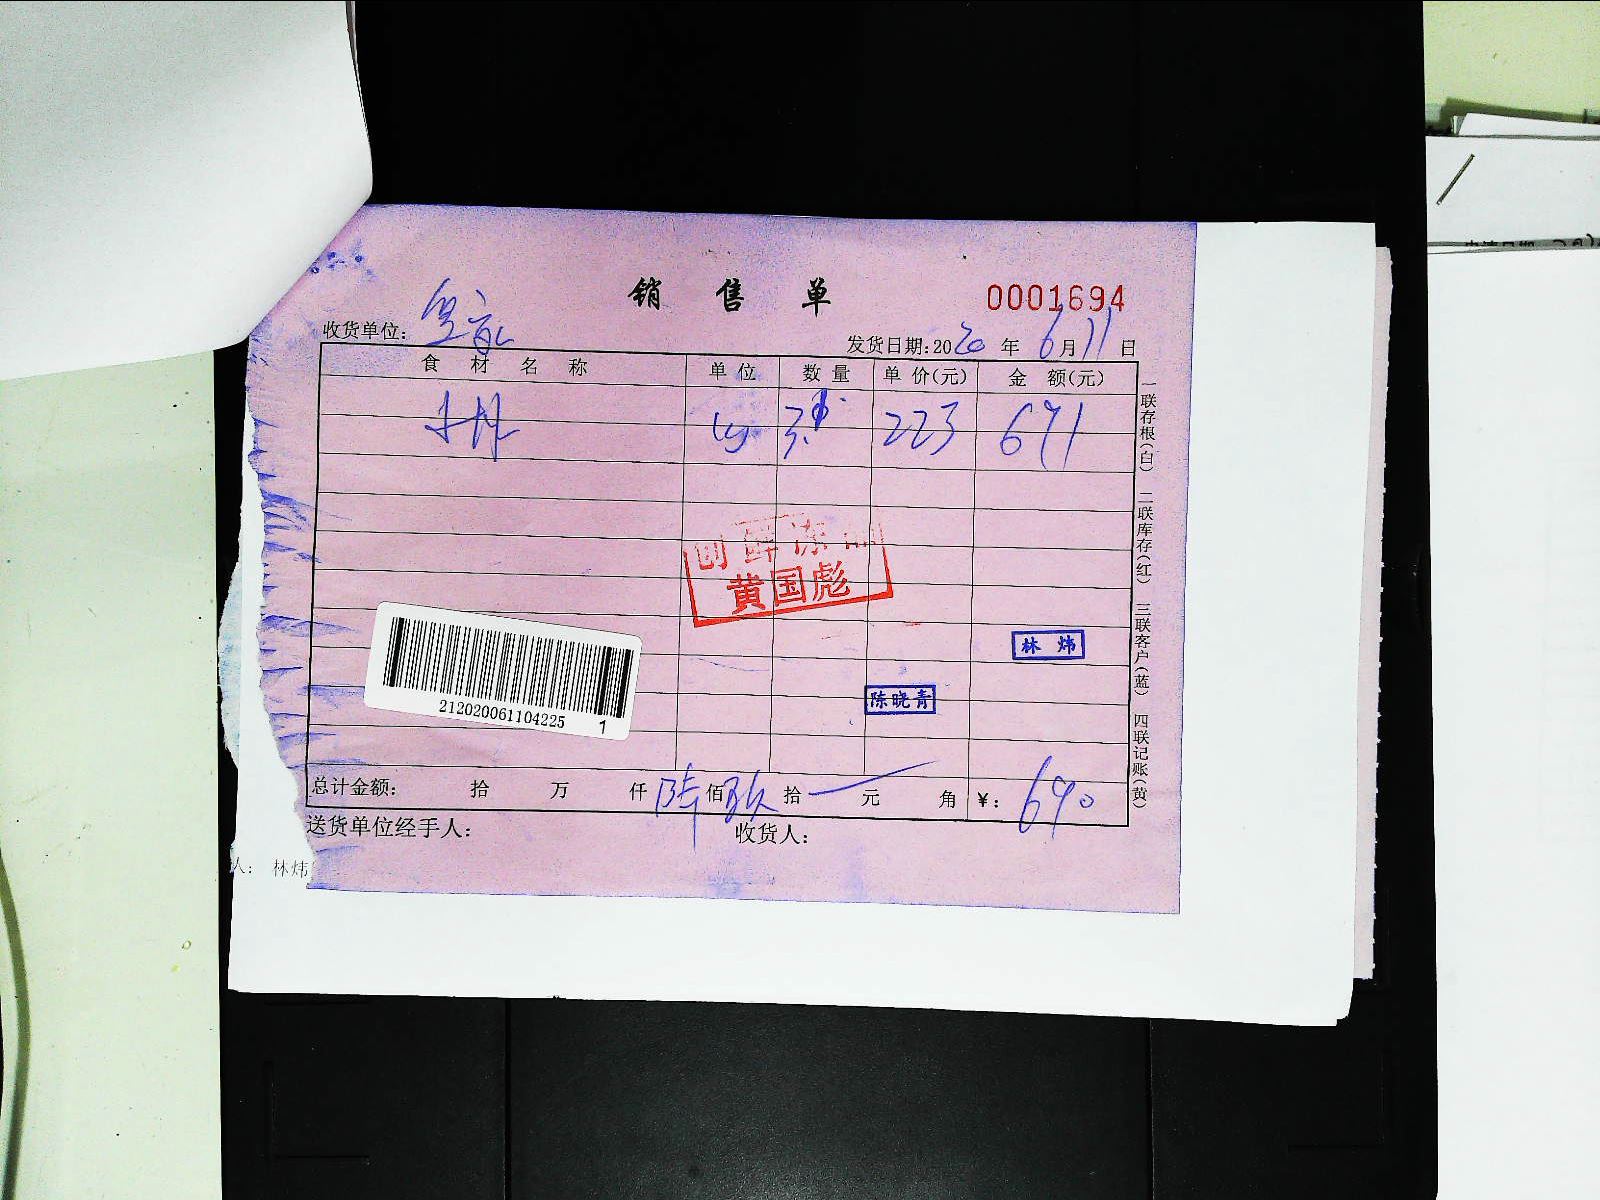 销 售 单
0001694
收货单位:
发货日期:2020 年 6月11日
食 材 名 称 单 位 数 量 单 价(元) 金 额(元)
223 671
一联存根(白) 二联库存(红) 三联客户(蓝) 四联记账(黄)
创鲜冻品
黄国彪
林 炜
陈晓青
212020061104225 1
总计金额: 拾 万 仟 陆 佰 玖 拾 元 角 ¥: 690
送货单位经手人: 收货人:
人: 林炜